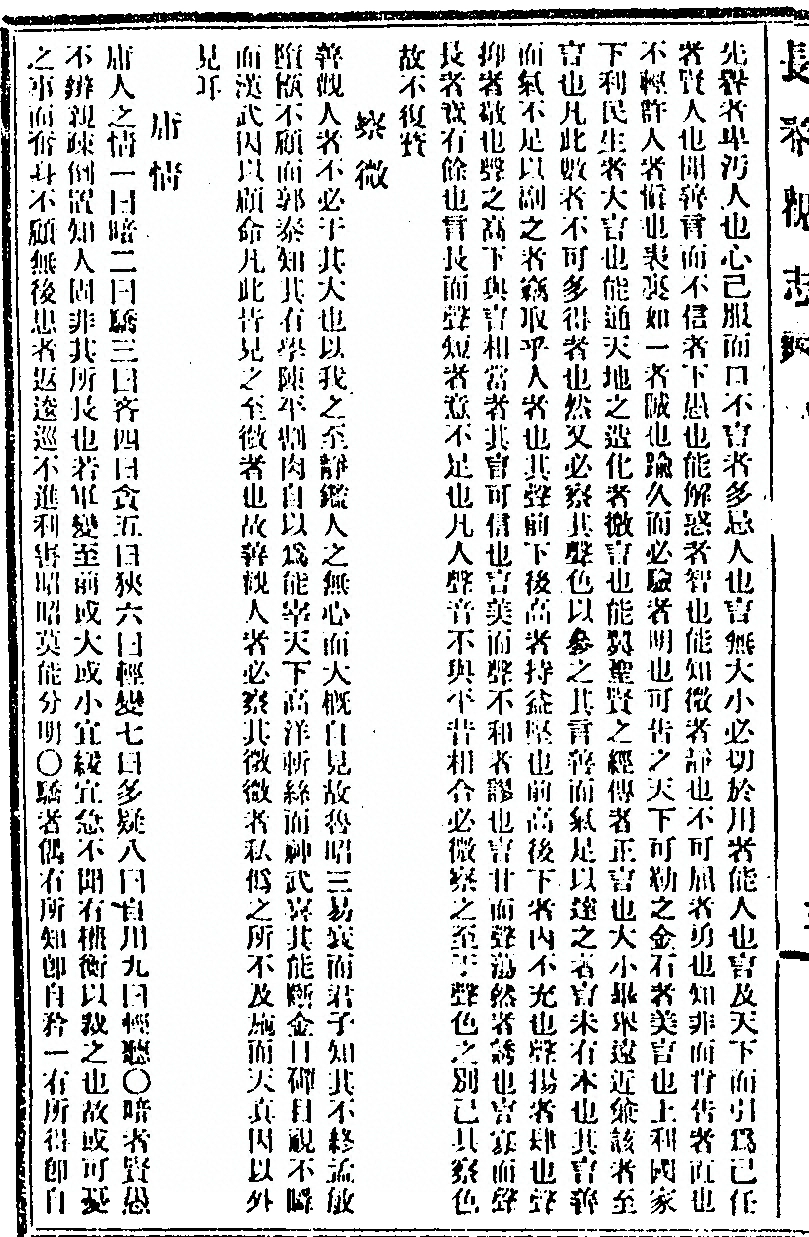 先譽者卑污人也心己服而口不言者多忌人也言無大小必切於用者能人也言及天下而引爲己任
者賢人也聞善言而不信者下愚也能解惑者智也能知微者靜也不可屈者勇也知非而肯告者直也
不輕許人者愼也表裏如一者誠也踰久而必驗者明也可告之天下可勒之金石者美言也上利國家
下利民生者大言也能通天地之造化者微言也能與聖賢之經傳者正言也大小畢舉遠近兼該者至
言也凡此數者不可多得者也然又必察其聲色以參之其言善而氣足以達之者言未有本也其言善
而氣不足以副之者竊取乎人者也其聲前下後高者持益堅也前高後下者內不充也聲揚者肆也聲
抑者敬也聲之高下與言相當者其言可信也言美而聲不和者謬也言甘而聲蕩然者誘也言寡而聲
長者意有餘也言長而聲短者意不足也凡人聲音不與平昔相合必微察之至于聲色之別已具察色
故不復贅
察微
善觀人者不必于其大也以我之至靜鑑人之無心而大槪自見故魯昭三易衰而君子知其不終孟敏
墮甑不顧而郭泰知其有學陳平割肉自以爲能宰天下高洋斬絲而神武異其能斷金日磾目視不瞬
而漢武因以顧命凡此皆見之至微者也故善觀人者必察其微微者私僞之所不及施而天眞因以外
見耳
庸情
庸人之情一曰暗二曰驕三曰吝四曰貪五曰狹六曰輕變七曰多疑八曰自用九曰輕聽〇暗者賢愚
不辨親疎倒置知人固非其所長也若單變至前或大或小宜緩宜急不聞有權衡以裁之也故或可憂
之事而奮身不顧無後患者返逡巡不進利害昭昭莫能分明〇驕者偶有所知卽自矜一有所得卽自